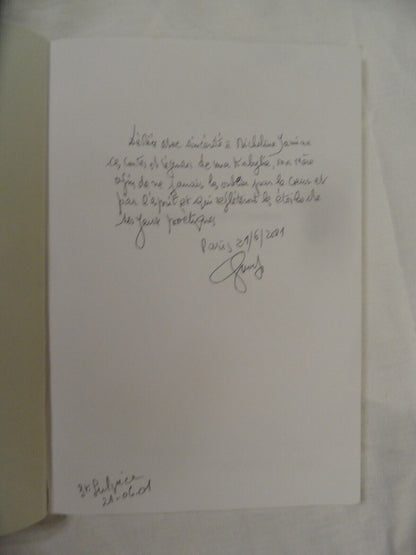 Dédiée avec sincérité à Micheline Janine
ces contes et légendes de ma Kabylie, ma mère
afin de ne jamais les oublier par le cœur et
par l'esprit et qui reflèteront les étoiles de
ses yeux poétiques
Paris 21/6/2001
St. Sulpice
21.06.01